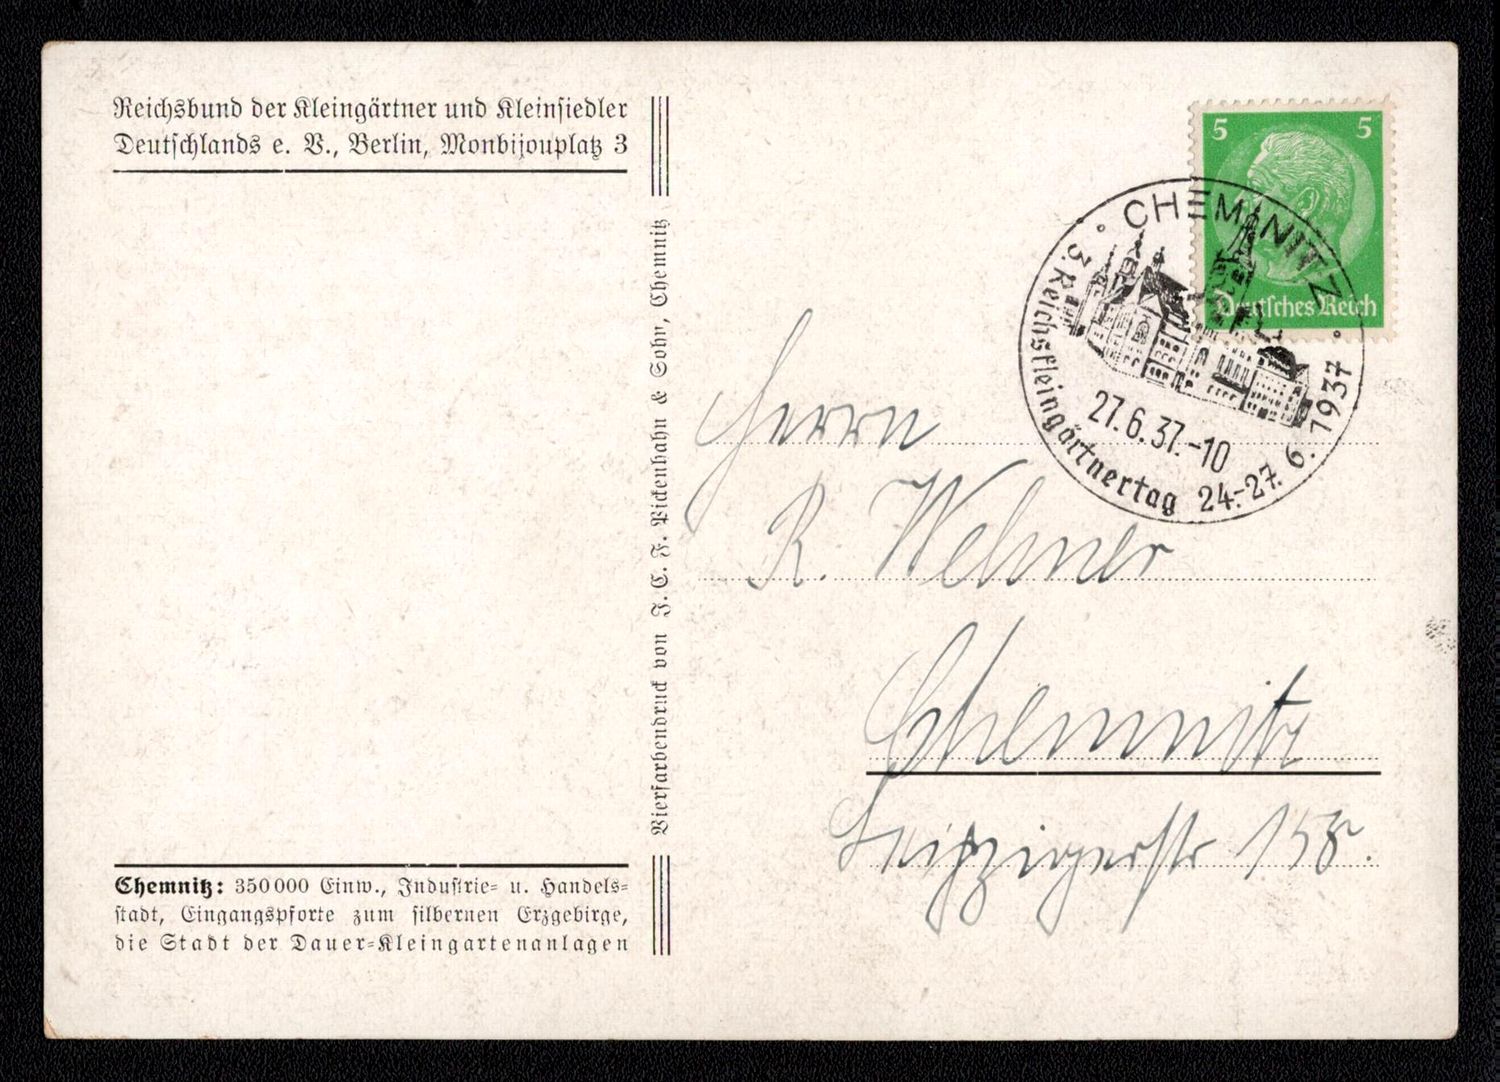 Reichsbund der Kleingärtner und Kleinsiedler
Deutschlands e. V., Berlin, Monbijouplatz 3
Vierfarbendruck von J. C. F. Pickenhahn & Sohn, Chemnitz
5 5
Deutsches Reich
CHEMNITZ
3. Reichskleingärtnertag 24.-27. 6. 1937
27.6.37.-10
Herrn
R. Wehner
Chemnitz
Leipzigerstr 158.
Chemnitz: 350 000 Einw., Industrie- u. Handels-
stadt, Eingangspforte zum silbernen Erzgebirge,
die Stadt der Dauer-Kleingartenanlagen